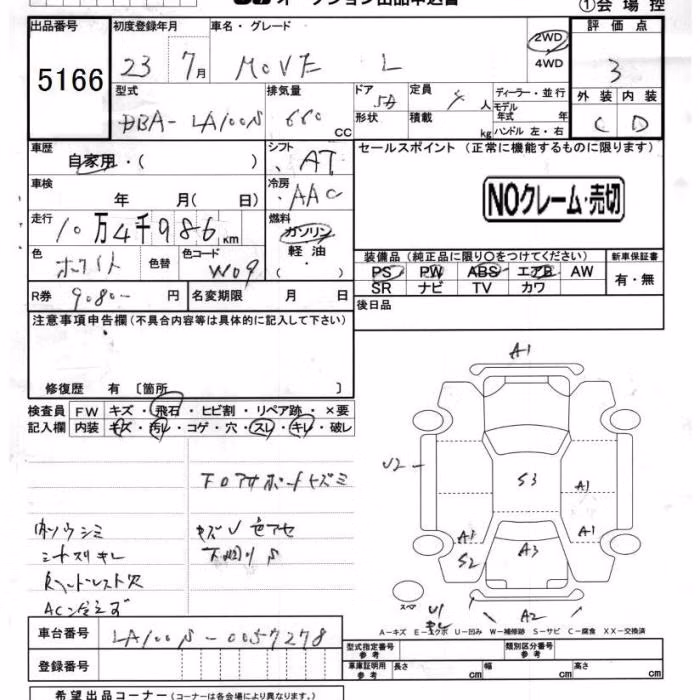 オークション出品申込書
①会場控
出品番号 初度登録年月 車名・グレード 評価点
5166 23 7月 MOVE L 2WD 4WD 3
型式 排気量 ドア 定員 ディーラー・並行 外装 内装
DBA-LA100S 660 CC 5D 4人 モデル年式 年 C D
形状 積載 kg ハンドル 左・右
車歴 シフト セールスポイント (正常に機能するものに限ります)
自家用・( ) AT
車検 冷房
年 月( 日) AAC NOクレーム・売切
走行 燃料
10万4千986km ガソリン
軽油
( )
色 色替 色コード 装備品(純正品に限り○をつけてください) 新車保証書
ホワイト W09 PS PW ABS エアB AW 有・無
SR ナビ TV カワ
R券 9080- 円 名変期限 月 日 後日品
注意事項申告欄(不具合内容等は具体的に記入して下さい)
修復歴 有 [箇所 ]
検査員 FW キズ・飛石・ヒビ割・リペア跡・×要
記入欄 内装 キズ・汚レ・コゲ・穴・スレ・キレ・破レ
A1
U2
S3
A1
A1
A1
S2
A3
キズU色アセ
シートスリキレ
ヘッドレスト穴
AC
スペ
U1
A2
A-キズ E-エクボ U-凹み W-補修跡 S-サビ C-腐食 XX-交換済
車台番号 LA100S-0057278
型式指定番号 参考 類別区分番号 参考
登録番号
車庫証明用 参考 長さ cm 幅 cm 高さ cm
希望出品コーナー(コーナーは各会場により異なります。)